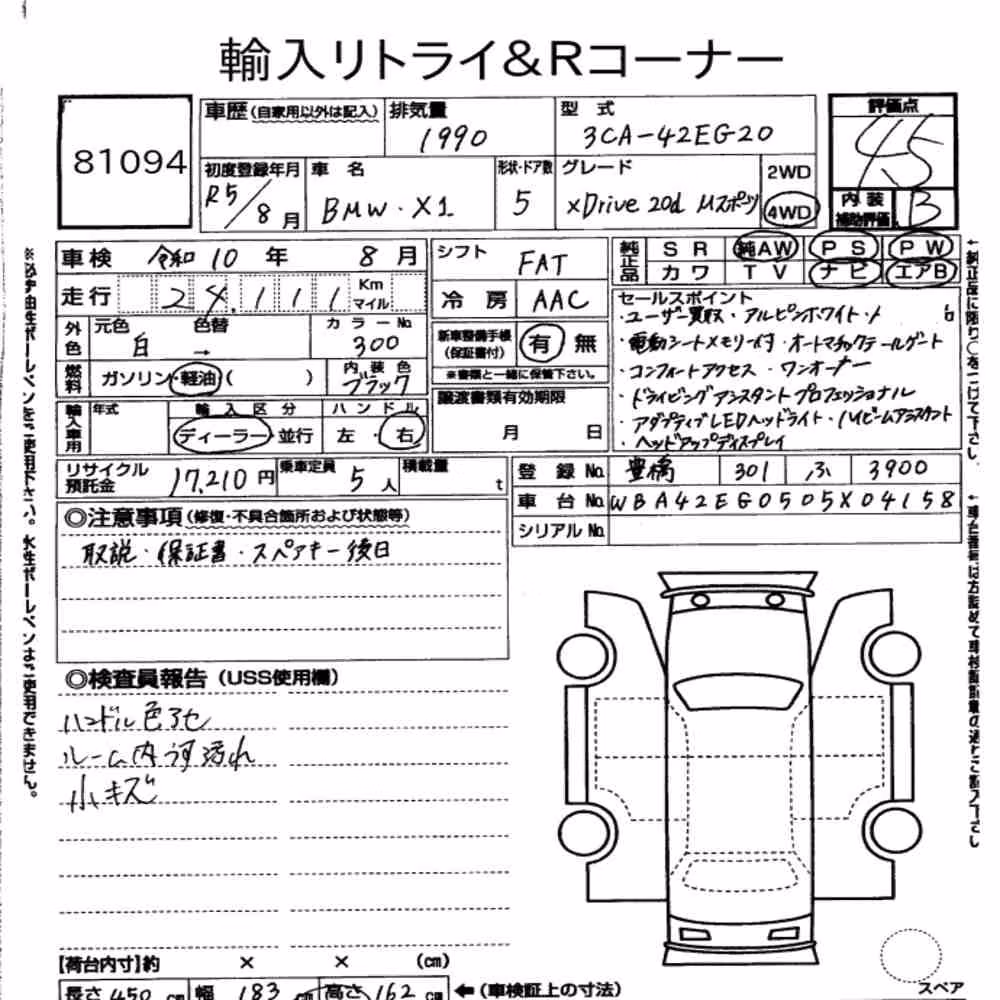 輸入リトライ&Rコーナー
81094
車歴(自家用以外は記入) 排気量 1990
型式 3CA-42EG20
評価点 4.5
初度登録年月 R5/8月
車名 BMW・X1
形状・ドア数 5
グレード xDrive 20d Mスポーツ
2WD
4WD
内装補助評価 B
車検 令和10年 8月
走行 24,111 Km マイル
外色 元色 白 色替 →
カラーNo. 300
燃料 ガソリン・軽油・( )
内装色 ブラック
輸入車用 年式
輸入区分 ディーラー・並行
ハンドル 左・右
リサイクル預託金 17,210円
乗車定員 5人
積載量 t
シフト FAT
冷房 AAC
新車整備手帳(保証書付) 有 無
※書類と一緒に保管下さい。
譲渡書類有効期限
月 日
純正品 SR 純AW PS PW
カワ TV ナビ エアB
セールスポイント
・ユーザー買取・アルピンホワイト
・電動シートメモリー付・オートマチックテールゲート
・コンフォートアクセス・ワンオーナー
・ドライビングアシスタントプロフェッショナル
・アダプティブLEDヘッドライト・ハイビームアシスタント
・ヘッドアップディスプレイ
登録No. 豊橋 301 ふ 3900
車台No. WBA42EG0505X04158
シリアルNo.
◎注意事項(修復・不具合箇所および状態等)
取説・保証書・スペアキー後日
◎検査員報告(USS使用欄)
ハンドル色アセ
ルーム内うす汚れ
小キズ
【荷台内寸】約 × × (cm)
長さ 450 cm 幅 183 cm 高さ 162 cm ←(車検証上の寸法)
スペア
※必ず油性ボールペンをご使用下さい。水性ボールペンはご使用できません。
←純正品に限り○をつけて下さい。
←車台番号は左詰めで車検証記載の通りご記入下さい